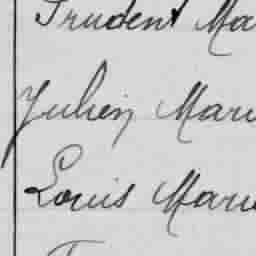 Prudent Ma
Julien Mari
Louis Mari